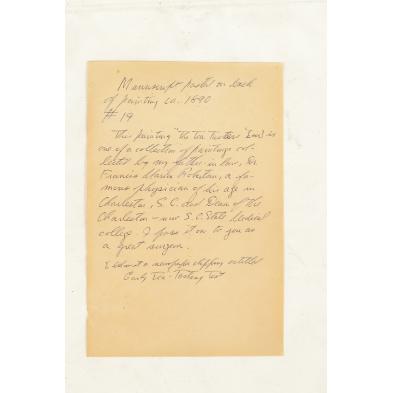 Manuscript pasted on back
of painting ca. 1890
# 19
This painting "the Tea Tasters" is
one of a collection of paintings col-
lected by my father in law, Dr
Francis Marion Robertson, a fa-
mous physician of his age in
Charleston, S.C. and Dean of the
Charleston - now S.C. State Medical
college. I pass it on to you as
a great surgeon.
a newspaper clipping entitled
Early Tea-Tasting Test